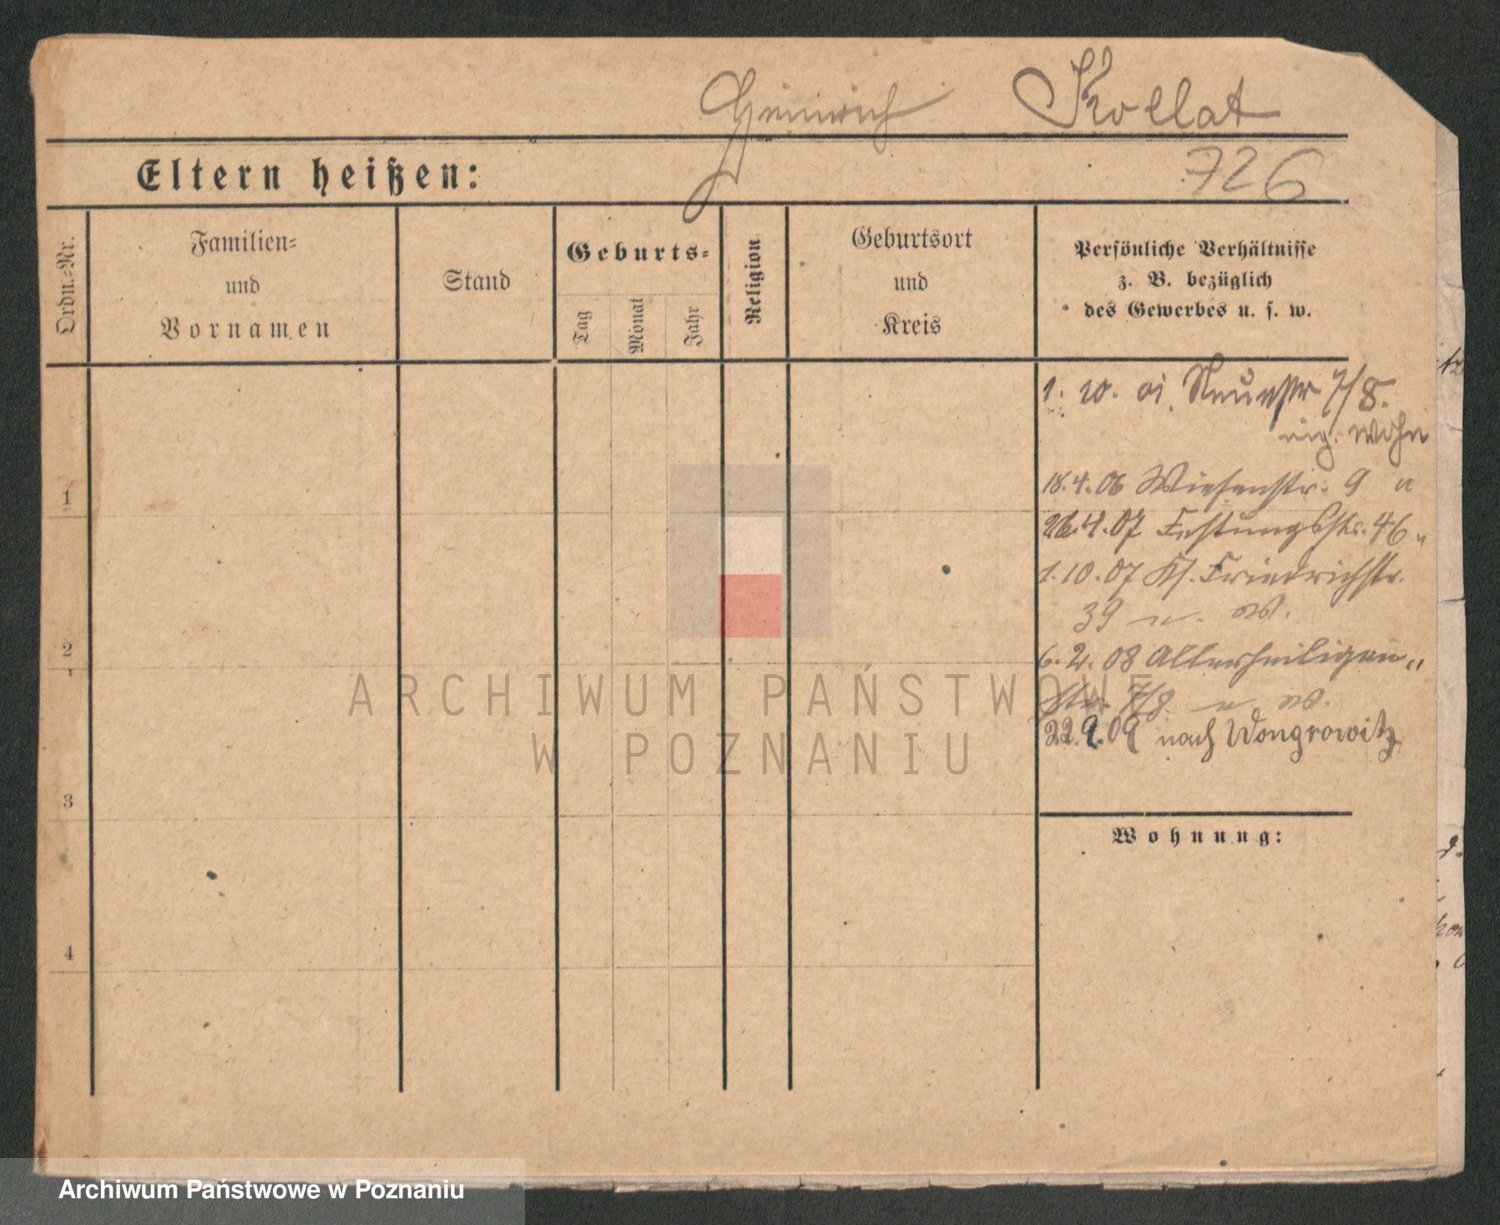 Heinrich Kollat
Eltern heißen: 726
Ordn.-Nr.
Familien-
und
Vornamen
Stand
Geburts-
Tag
Monat
Jahr
Religion
Geburtsort
und
Kreis
Persönliche Verhältnisse
z. B. bezüglich
des Gewerbes u. s. w.
1. 10. 01. 7/8.
eig. Wohn
1
18.4.06 Wiesenstr. 9 "
26.4.07 Festungsstr. 46 "
1.10.07 Kl. Friedrichstr.
39 W.
2
6.2.08 Allerheiligen-
str. 7/8 W.
22.9.09 nach Wongrowitz
3
Wohnung:
4
ARCHIWUM PAŃSTWOWE
W POZNANIU
Archiwum Państwowe w Poznaniu